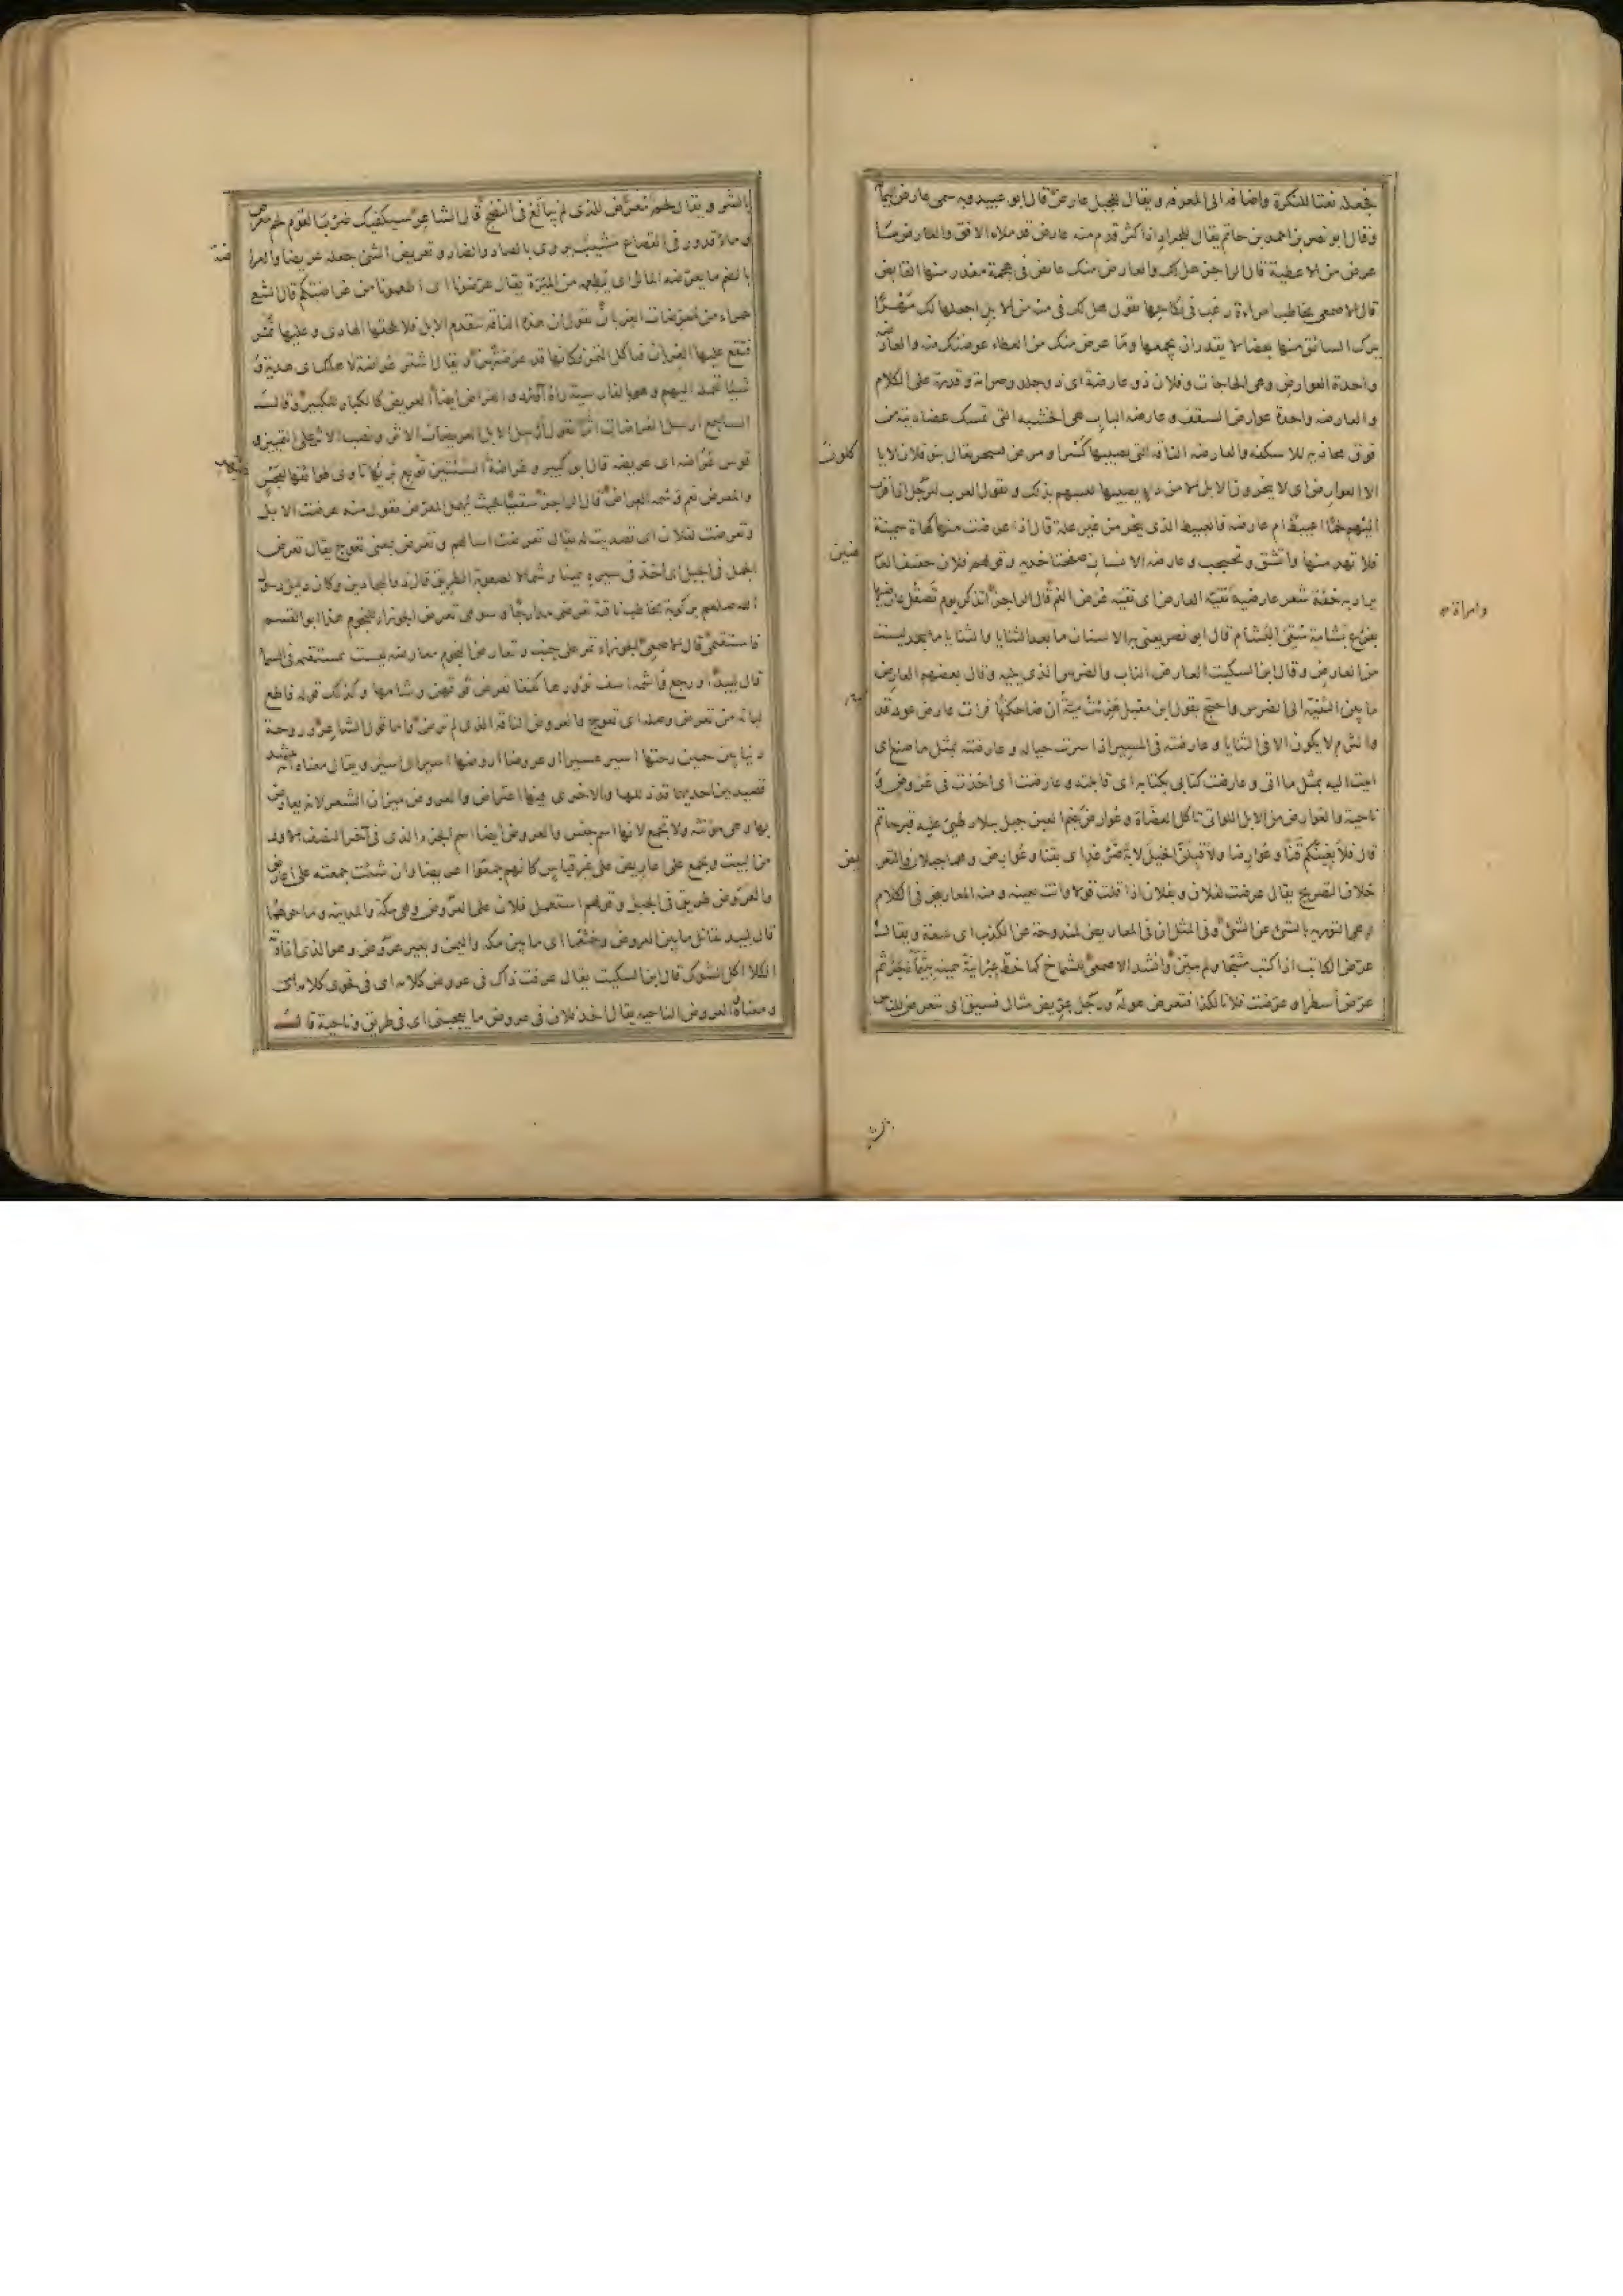 فجعله نعتا للنكرة واضافه الى المعرفه ويقال للجبل عارض قال ابو عبيد وبه سمى عارض اليمامة
وقال ابو نصر بن احمد بن حاتم يقال للجراد اذا كثر قد مر منه عارض قد ملاء الافق والعارض ما
عرض من الاعطية قال الراجز هل لك والعارض منك عايض فى هجمة يغدر منها القابض
قال الاصمعى يخاطب امراءة رغب فى نكاحها يقول هل لك فى مئة من الابل اجعلها لك مهرا
يترك السائق منها بعضا لا يقدر ان يجمعها وما عرض منك من العطاء عوضتك منه والعارضة
واحدة العوارض وهى الحاجات وفلان ذو عارضة اى ذو جلد وصرامة وقدرة على الكلام
والعارضه واحدة عوارض السقف وعارضه الباب هى الخشبه التى تمسك عضادتيه من
فوق محاذيه للاسكفه والعارضه الناقه التى يصيبها كسر او مرض فتنحر يقال بنو فلان لا ياكلون
الا العوارض اى لا ينحرون الابل الا من داء يصيبها تعيبهم بذلك وتقول العرب للرجل اذا قرب
اليهم لحما اعبيط ام عارضه فالعبيط الذى ينحر من غير علة قال اذا عرضت منها كهاة سمينة
فلا تهد منها واتشق وتجبجب وعارضه الانسان صفحتا خديه وقولهم فلان خفيف العارضين
يراد به خفة شعر عارضيه وامراة نقيه العارض اى نقيه عرض الفم قال الراجز اتذكر يوم تصقل عارضيها
بفرع بشامة سقى البشام قال ابو نصر يعنى به الاسنان ما بعد الثنايا والثنايا ليست
من العارض وقال ابن السكيت العارض الناب والضرس الذى يليه وقال بعضهم العارض
ما بين الثنيه الى الضرس واحتج بقول ابن مقبل هزئت مية ان ضاحكتها فرات عارض عود قد ثرم
والثرم لا يكون الا فى الثنايا وعارضته فى المسير اذا سرت حياله وعارضته بمثل ما صنع اى
اتيت اليه بمثل ما اتى وعارضت كتابى بكتابه اى قابلته وعارضت اى اخذت فى عروض و
ناحية والعوارض من الابل اللواتى تاكل العضاة وعوارض بضم العين جبل ببلاد طيئ عليه قبر حاتم
قال فلابغينكم قنا وعوارضا ولاقبلن الخيل لابة ضرغد اى بقنا وعوارض وهما جبلان والتعريض
خلاف التصريح يقال عرضت لفلان وبفلان اذا قلت قولا وانت تعنيه ومنه المعاريض فى الكلام
وهى التوريه بالشئ عن الشئ وفى المثل ان فى المعاريض لمندوحة عن الكذب اى سعة ويقال
عرض الكاتب اذا كتب مثبجا ولم يبين وانشد الاصمعى للشماخ كما خط عبرانية بيمينه بتيماء حبر ثم
عرض اسطرا وعرضت فلانا لكذا فتعرض هو له ورجل عريض مثال فسيق اى يتعرض للناس
بالشر ويقال لحم معرض للذى لم يبالغ فى النضج قال الشاعر سيكفيك ضرب القوم لحم معرض
وماء قدور فى القصاع مشيب يروى بالصاد والضاد وتعريض الشئ جعله عريضا والعراضة
بالضم ما يعرضه المائر اى يطعمه من الميرة يقال عرضونا اى اطعمونا من عراضتكم قال
حمراء من معرضات الغربان يقول ان هذه الناقه تتقدم الابل فلا يلحقها الحادى وعليها تمر
فتقع عليها الغربان فتاكل التمر فكانها قد عرضتهن ويقال اشتر عراضة لاهلك اى هدية و
شيئا تحمله اليهم وهو بالفارسية راه آورد والعراض ايضا العريض كالكبار للكبير وقال
الساجع ارسل العراضات اثرا يقول ارسل الابل العريضات الاثار ونصب الاثر على التمييز و
قوس عراضه اى عريضه قال ابو كبير وعراضة السيتين توبع بريها تاوى طوائفها لعجس
والمعرض نعم وسمه العراض قال الراجز سقيا بحيث يهمل المعرض تقول منه عرضت الابل
وتعرضت لفلان اى تصديت له يقال تعرضت اسالهم وتعرض بمعنى تعوج يقال تعرض
الجمل فى الجبل اى اخذ فى سيره يمينا وشمالا لصعوبة الطريق قال ذو البجادين وكان دليل رسول
الله صلعم بركوبة يخاطب ناقته تعرضى مدارجا وسومى تعرض الجوزاء للنجوم هذا ابو القسم
فاستقمى قال الاصمعى الجوزاء تمر على جنب وتعارض النجوم معارضه ليست بمستقيمه فى السماء
قال لبيد او رجع واشمه اسف نؤورها كففا تعرض فوقهن وشامها وكذلك قوله فاقطع
لبانة من تعرض وصله اى تعوج والعروض الناقه الذى لم ترض واما قول الشاعر وروحة
دنيا بين حيين رحتها اسير عسيرا او عروضا اروضها اسير اى اسير ويقال معناه انه ينشد
قصيدتين احديهما قد ذللها والاخرى فيها اعتراض والعروض ميزان الشعر لانه يعارض
بها وهى مؤنثه ولا تجمع لانها اسم جنس والعروض ايضا اسم الجزء الذى فى آخر النصف الاول
من البيت وتجمع على اعاريض على غير قياس كانهم جمعوا اعريضا وان شئت جمعته على اعارض
والعروض طريق فى الجبل وقولهم استعمل فلان على العروض وهى مكة والمدينه وما حولها
قال لبيد نقاتل ما بين العروض وخثعما اى ما بين مكه واليمن وبعير عروض وهو الذى اذا فاته
الكلا اكل الشوك قال ابن السكيت يقال عرفت ذاك فى عروض كلامه اى فى فحوى كلامه اى
ومعناه والعروض الناحيه يقال اخذ فلان فى عروض ما يعجبنى اى فى طريق وناحية قال